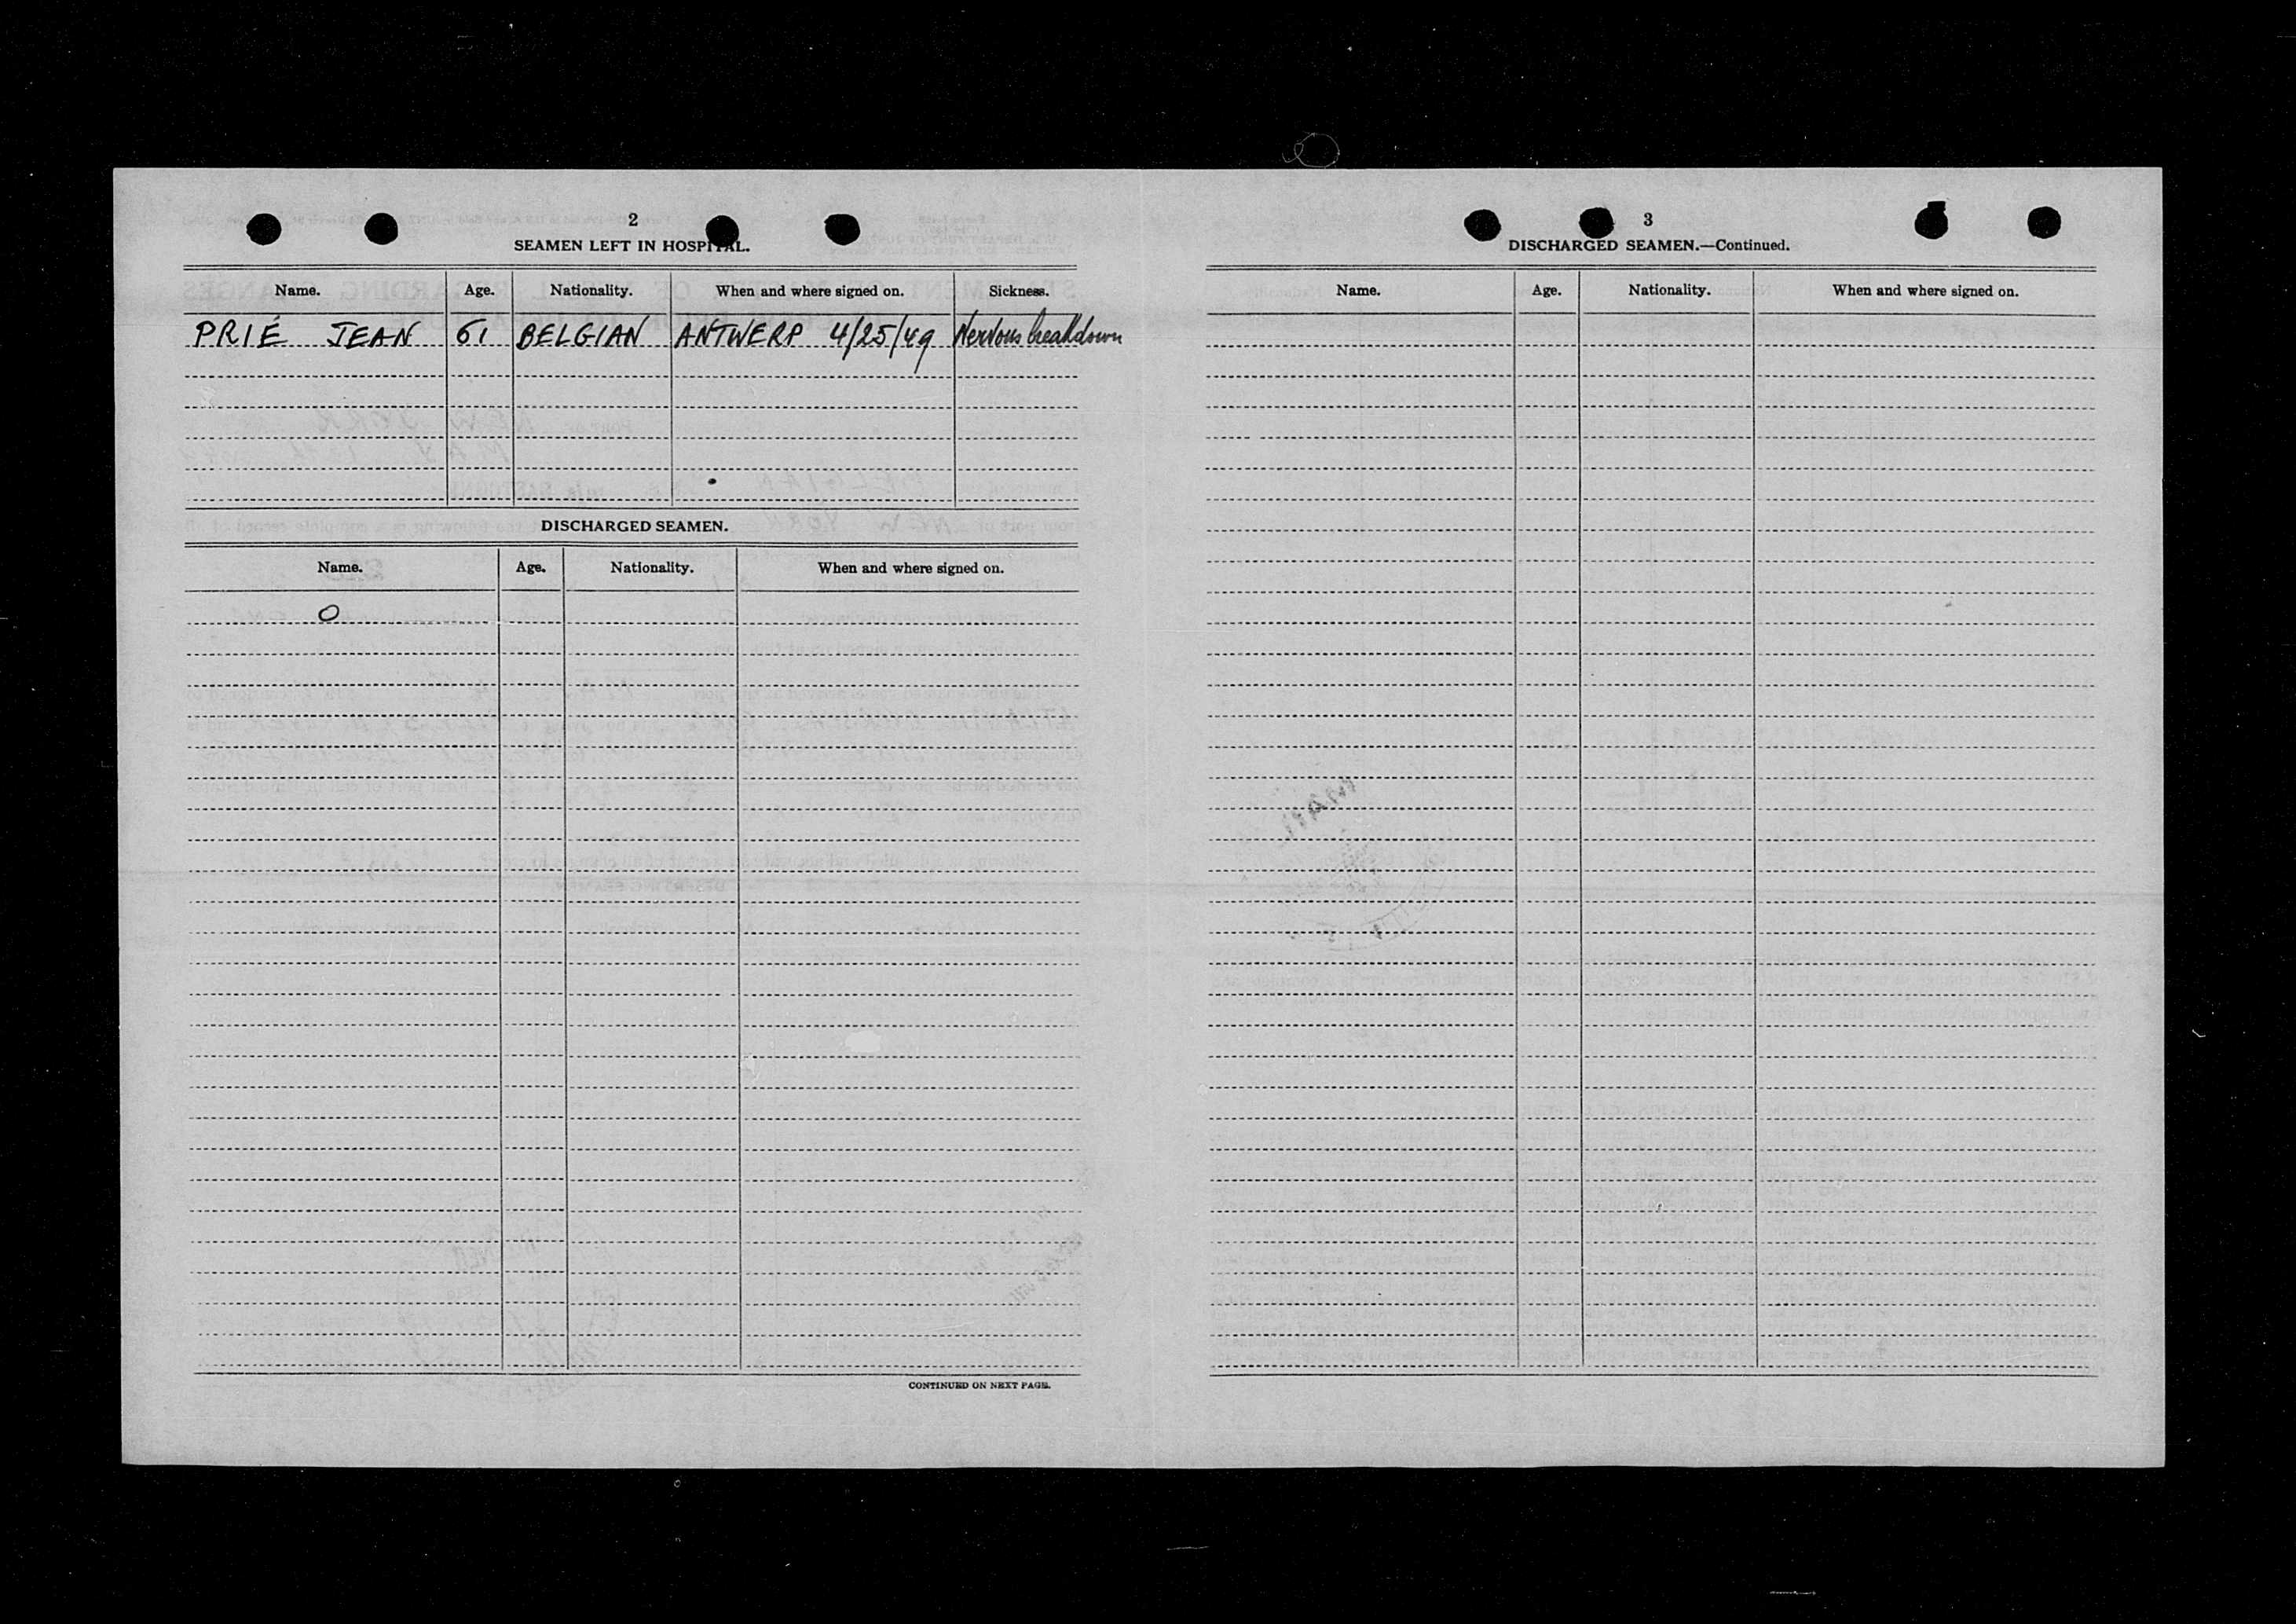 2
SEAMEN LEFT IN HOSPITAL.
Name. Age. Nationality. When and where signed on. Sickness.
PRIÉ JEAN 61 BELGIAN ANTWERP 4/25/49 Nervous breakdown
DISCHARGED SEAMEN.
Name. Age. Nationality. When and where signed on.
O
CONTINUED ON NEXT PAGE.
3
DISCHARGED SEAMEN.—Continued.
Name. Age. Nationality. When and where signed on.